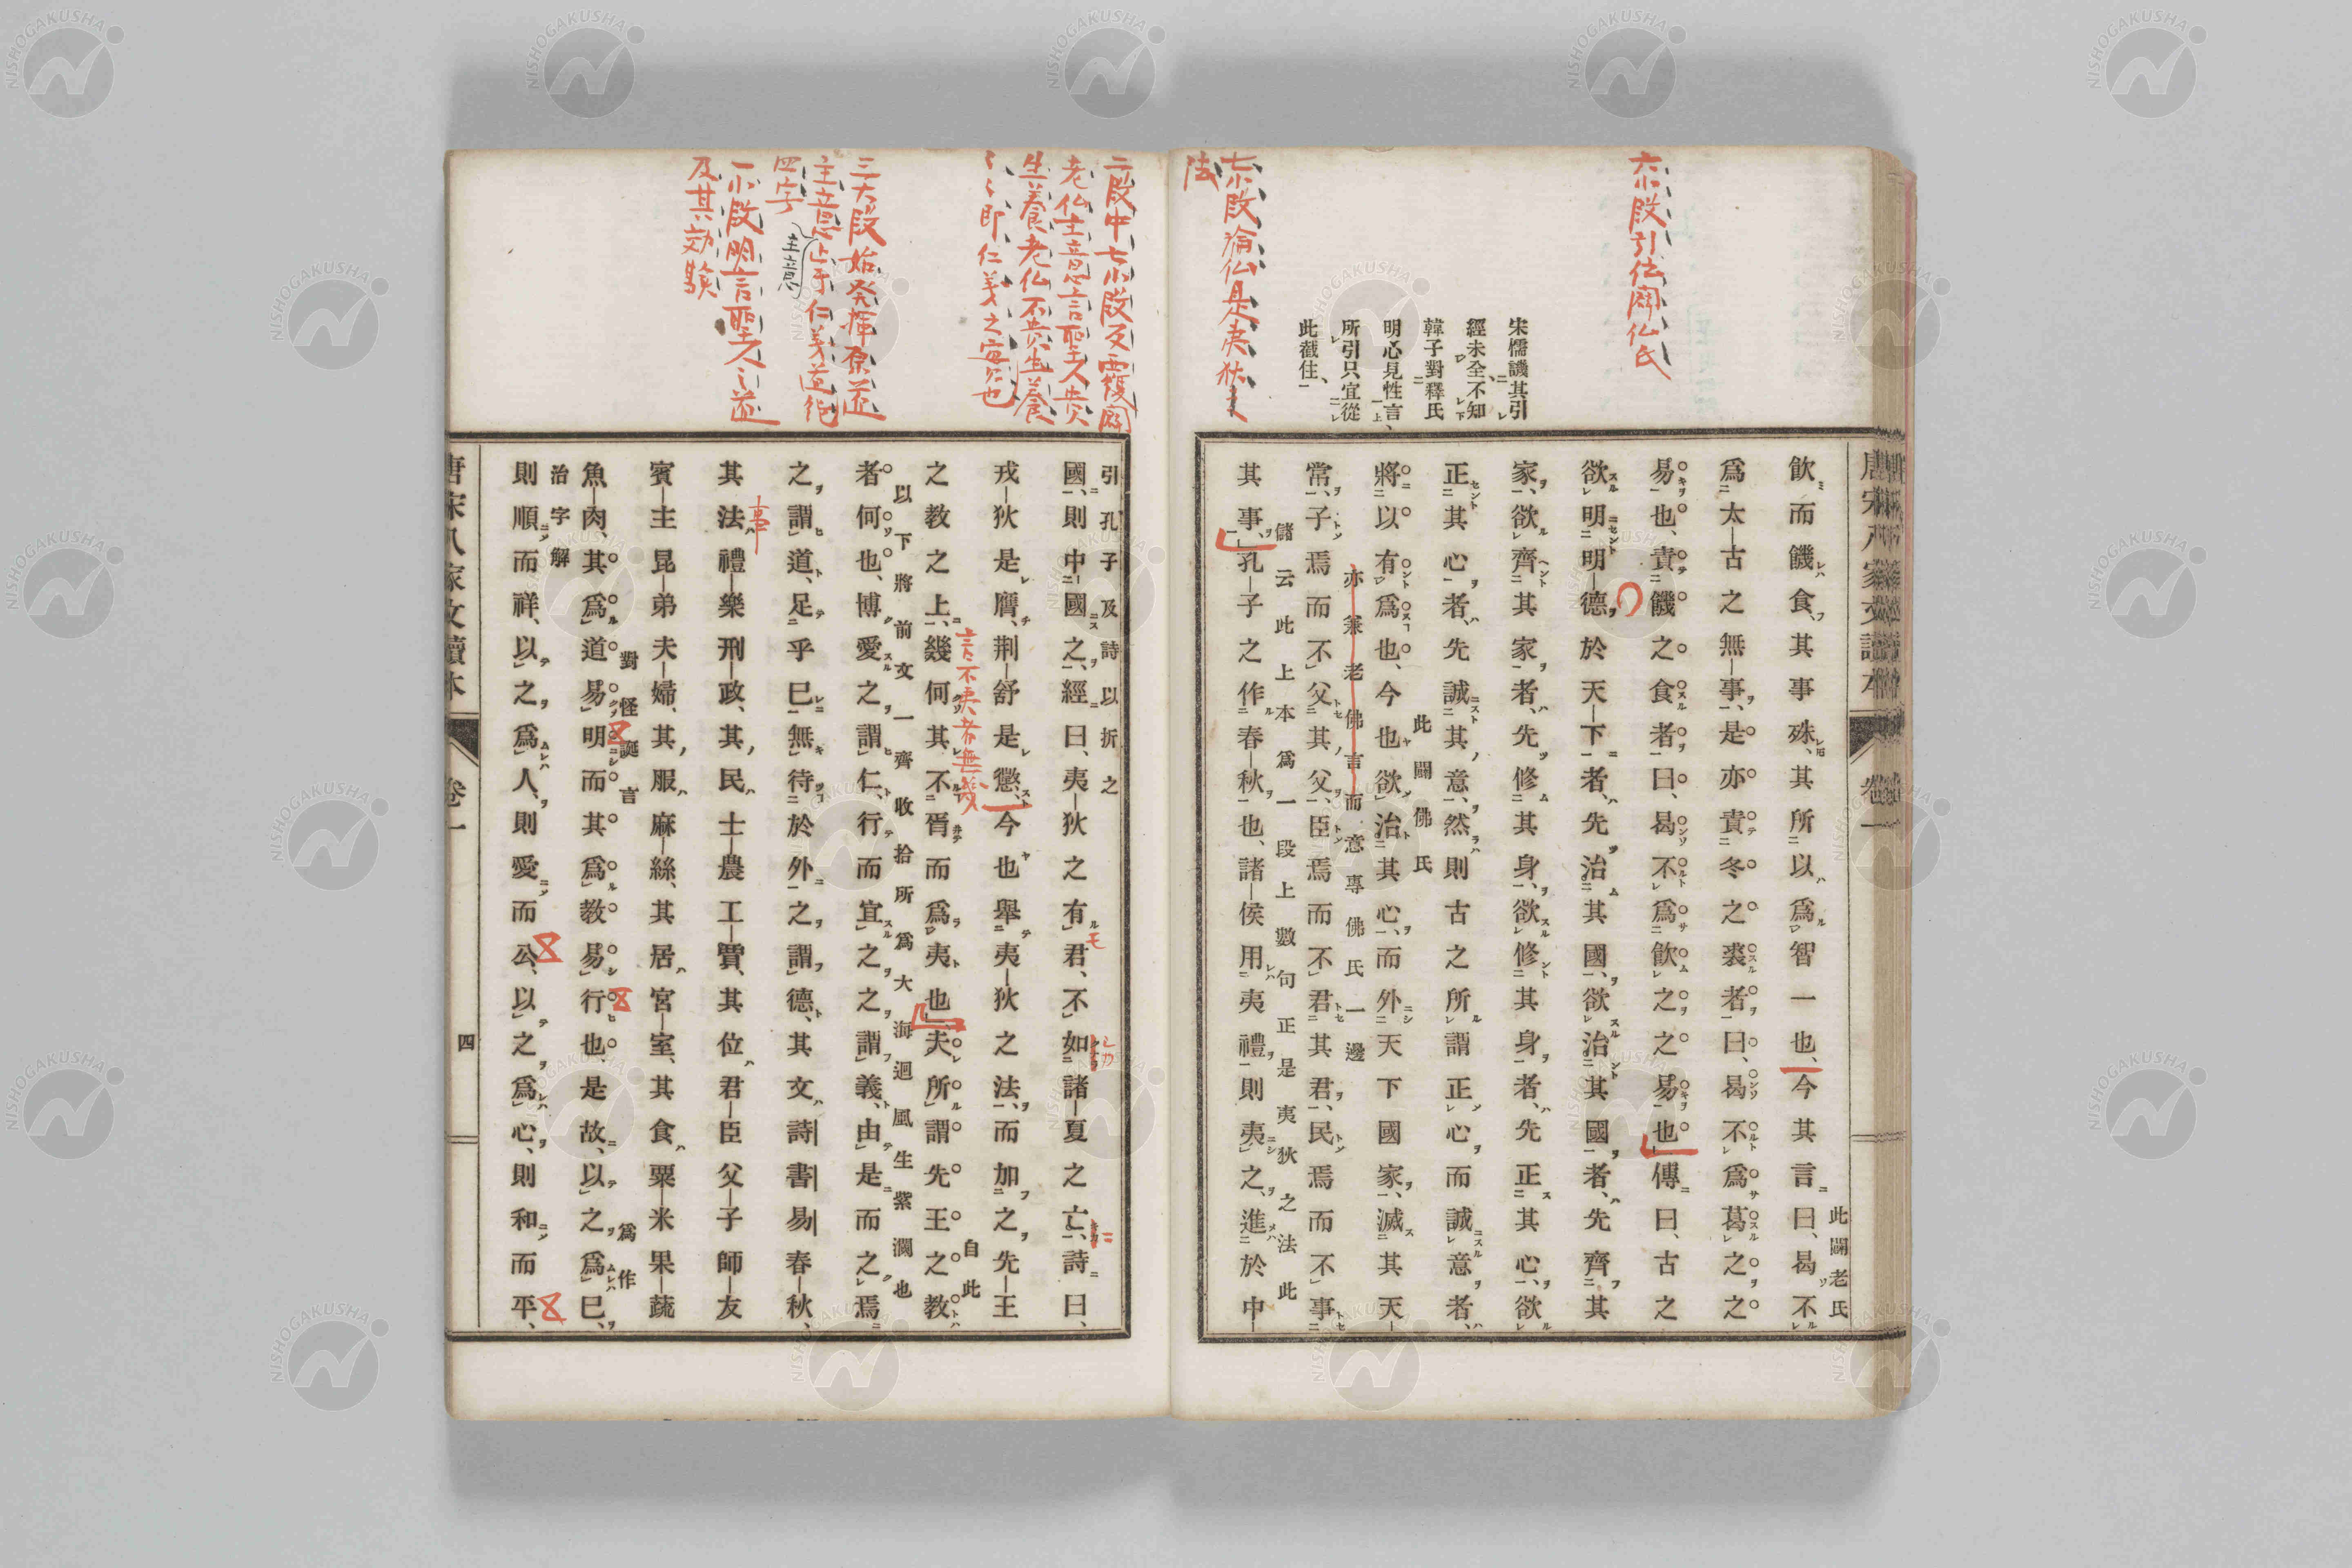 六小段引伝闢仏氏
宋懦譏其引
經未全不知
韓子對釋氏
明心見性言、
所引只宜從
此截住、
七小段論仏是夷狄之
法
唐宋八家文讀本
卷一
此闢老氏
飮而饑食、其事殊、其所以爲智一也、今其言曰、曷不
爲太古之無事、是亦責冬之裘者曰、曷不爲葛之之
易也、責饑之食者曰、曷不爲飮之之易也、傳曰、古之
欲明明德於天下者、先治其國、欲治其國者、先齊其
家、欲齊其家者、先修其身、欲修其身者、先正其心、欲
正其心者、先誠其意、然則古之所謂正心而誠意者、
此闢佛氏
將以有爲也、今也欲治其心、而外天下國家、滅其天
亦兼老佛言而意專佛氏一邊
常、子焉而不父其父、臣焉而不君其君、民焉而不事
儲云此上本爲一段上數句正是夷狄之法此
其事、孔子之作春秋也、諸侯用夷禮則夷之、進於中
二段中七小段反覆闢
老仏主意言聖人貴
生養老仏不貴生養
即仁義之寔也
三大段始発揮原道
主意止于仁義道徳
四字
主意
一小段明言聖人之道
及其効験
引孔子及詩以折之
國、則中國之、經曰、夷狄之有君、不如諸夏之亡、詩曰、
戎狄是膺、荆舒是懲、今也舉夷狄之法、而加之先王
言不夷者無幾
自此
之敎之上、幾何其不胥而爲夷也、夫所謂先王之敎
以下將前文一齊收拾所爲大海迴風生紫瀾也
者何也、博愛之謂仁、行而宜之之謂義、由是而之焉
之謂道、足乎已無待於外之謂德、其文詩書易春秋、
事
其法禮樂刑政、其民士農工賈、其位君臣父子師友
賓主昆弟夫婦、其服麻絲、其居宮室、其食粟米果蔬
對怪誕言
爲作
魚肉、其爲道易明而其爲敎易行也、是故、以之爲已、
治字解
則順而祥、以之爲人、則愛而公、以之爲心、則和而平、
唐宋八家文讀本
卷一
四
NISHOGAKUSHA